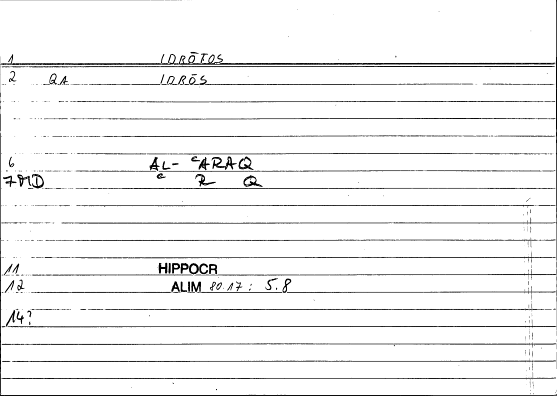 1 IDRŌTOS
2 QA IDRŌS
6 AL- ᶜARAQ
7 MD ᶜ R Q
11 HIPPOCR
12 ALIM 80.17: 5.8
14?